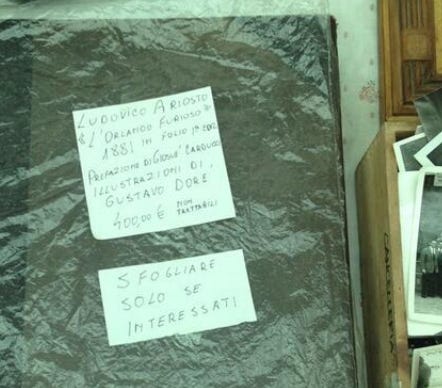 LUDOVICO ARIOSTO
"L'ORLANDO FURIOSO"
1881 IN FOLIO 1ª EDIZ
PREFAZIONE DI GIOSUE' CARDUCCI
ILLUSTRAZIONI DI
GUSTAVO DORE'
400,00 € NON
TRATTABILI
SFOGLIARE
SOLO SE
INTERESSATI